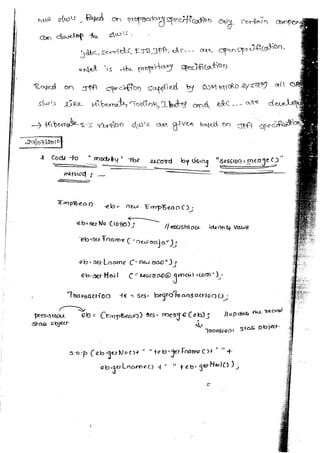 s/w's, Based on proprietary specification only certain company
can develop the s/w's.
jdbc, servlets, EJB, JPA, etc... are open specification,
is the proprietary specification
Based on JPA specification supplied by SUN MICRO SYSTEM all OR
s/w's like Hibernate, Toplink, and etc... are develop
→ Hibernate version s/w's are given based on JPA specification
Code to "modify" The record by Using "session.merge()"
method :
EmpBean eb= new EmpBean();
eb.setNo (1080); //existing identity value
eb.setFname ("newraja");
eb.setLname ("newrao");
eb.setMail ("newrao@gmail.com");
Transaction tx = ses.beginTransaction();
persistence eb = (EmpBean) ses.merge(eb); //updates the record
state object Transient state object
s.o.p (eb.getNo()+" "+eb.getFname()+" "+
eb.getLname()+" "+eb.getMail());